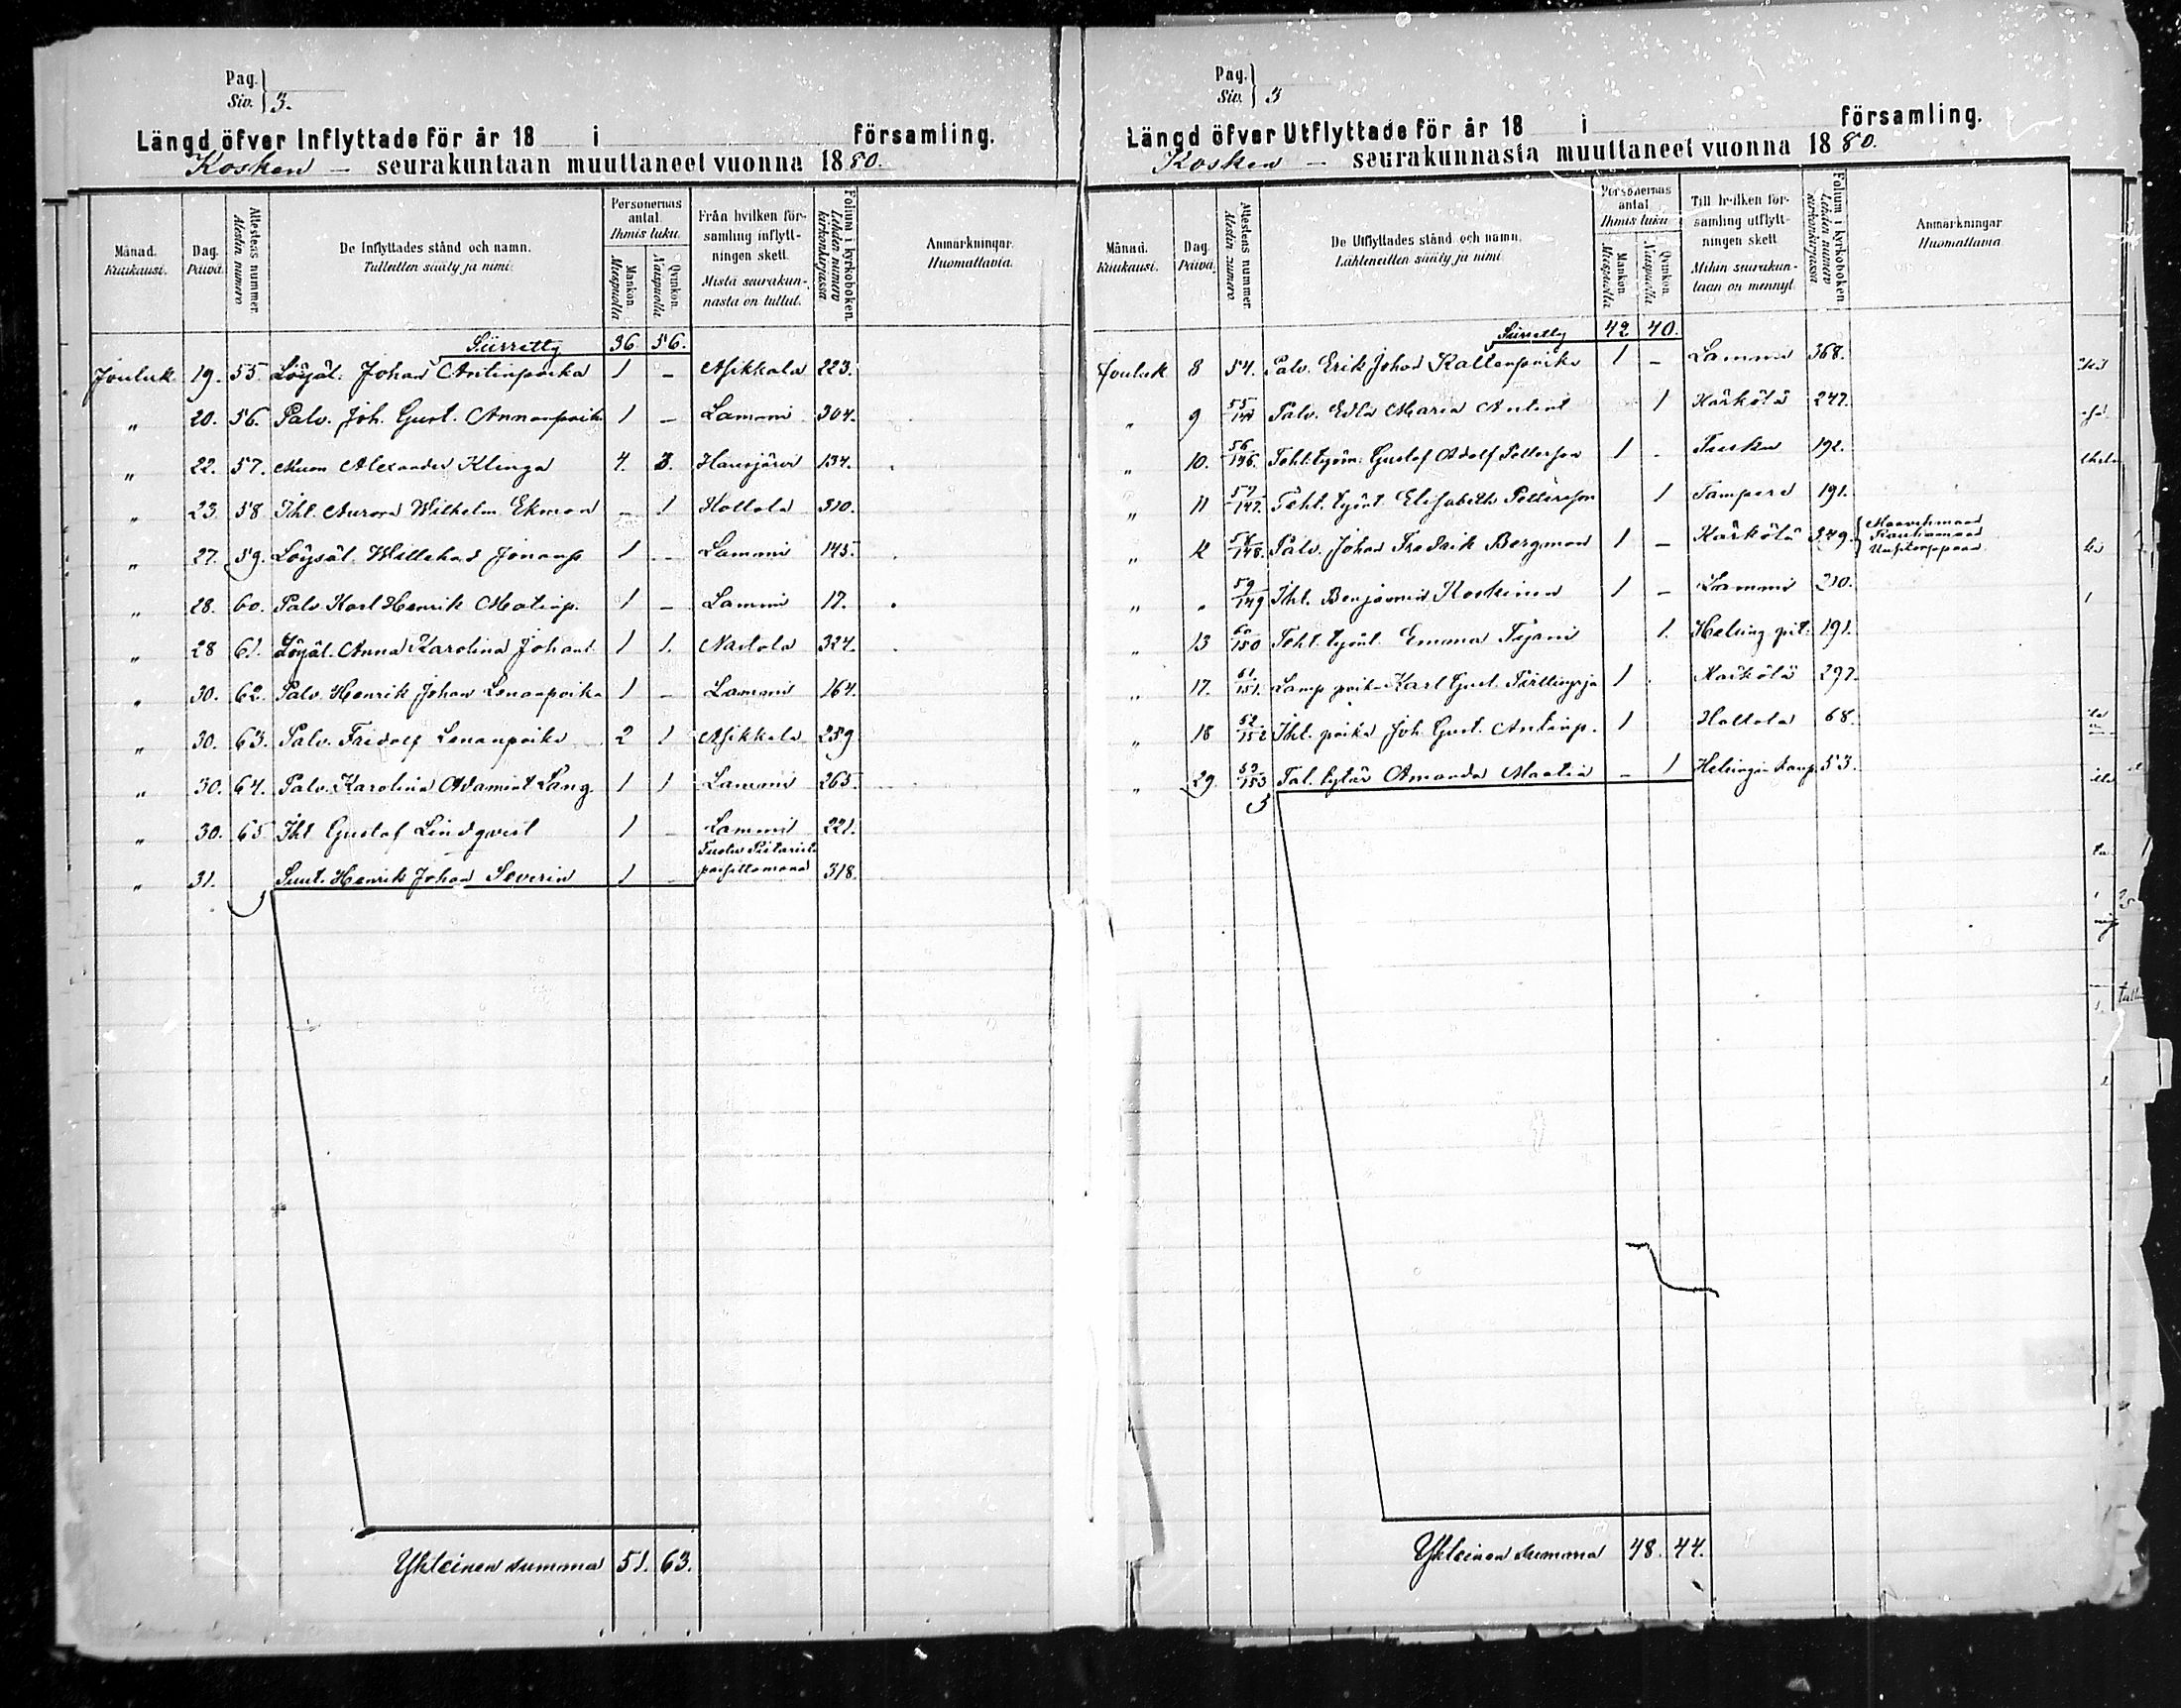 Pag.
Siv. 3.
Längd öfver Inflyttade för år 18 i församling.
Kosken – seurakuntaan muuttaneet vuonna 1880.
Månad. Kuukausi.
Dag. Päivä.
Attestens nummer. Atestin numero
De Inflyttades stånd och namn. Tulleitten sääty ja nimi.
Personernas antal. Ihmis luku.
Mankön. Miespuolia
Qvinkön. Naispuolia
Från hvilken församling inflyttningen skett. Mistä seurakunnasta on tullut.
Folium i kyrkoboken. Lehden numero kirkonkirjassa
Anmärkningar. Huomattavia.
Siirretty 36 56.
Jouluk. 19. 55. Löysäl. Johan Antinpoika 1 – Asikkala 223.
„ 20. 56. Palv. Joh. Gust. Annanpoik 1 – Lammi 304.
„ 22. 57. Muon Alexander Klinga 4. 3. Hausjärvi 134.
„ 23 58 Ihl. Aurora Wilhelm. Ekman – 1 Hollola 310.
„ 27. 59. Löysäl. Willehad Jonanp 1 – Lammi 145.
„ 28. 60. Palv Karl Henrik Matinp. 1 – Lammi 17.
„ 28 61. Löysäl. Anna Karolina Johant. 1 1. Nastola 324.
„ 30. 62. Palv. Henrik Johan Lenanpoika 1 – Lammi 164.
„ 30. 63. Palv. Fridolf Lenanpoika 2 1 Asikkala 259
„ 30. 64. Palv. Karolina Adamint Lång 1 1 Lammi 265.
„ 30. 65 Ihl Gustaf Lindqvist 1 – Lammi 221.
„ 31. Suut. Henrik Johan Severin 1 – 318.
Yhteinen summa 51. 63.
Pag.
Siv. 3
Längd öfver Utflyttade för år 18 i församling.
Kosken – seurakunnasta muuttaneet vuonna 1880.
Månad. Kuukausi.
Dag. Päivä.
Attestens nummer. Atestin numero
De Utflyttades stånd och namn. Lähteneitten sääty ja nimi
Personernas antal Ihmis luku
Mankön. Miespuolia
Qvinkön. Naispuolia
Till hvilken församling utflyttningen skett. Mihin seurakuntaan on mennyt.
Folium i kyrkoboken Lehden numero kirkonkirjassa
Anmärkningar Huomattavia
Siirretty 42 40.
Jouluk 8 54. Palv. Erik Johan Kallenpoika 1 – Lammi 368.
„ 9 55/145 Palv. Edla Maria Antint 1 Kärkölä 247.
„ 10. 56/146. Teht. työm. Gustaf Adolf Petterson 1 – Turku 192.
„ 11 57/147. Teht. työnt. Elisabeth Petterson 1 Tampere 191.
„ 12 58/148. Palv. Johan Fredrik Bergman 1 – Kärkölä 349.
„ „ 59/149 Ihl. Benjamin Koskinen 1 – Lammi 210.
„ 13 60/150 Teht. työnt. Emma Tyäni 1. Helsing pit. 191.
„ 17. 61/151. Lamp poika Karl Gust. 1 Kärkölä 297.
„ 18 52/152 Ihl. poika Joh Gust. Antinp. 1 Hollola 68.
„ 29. 53/153 Tal. tytär Amanda Maatia – 1 Helsingin kaup. 53.
Yhteinen summa 48. 44.